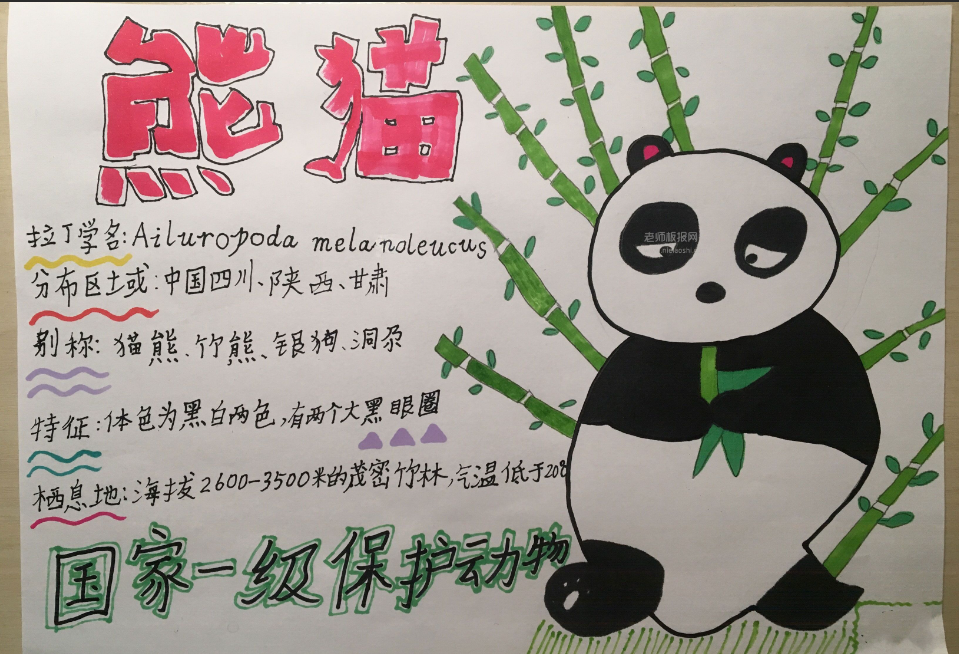 熊猫
拉丁学名:Ailuropoda melanoleucus
分布区土或:中国四川、陕西、甘肃
别称:猫熊、竹熊、银狗、洞尕
特征:体色为黑白两色,有两个大黑眼圈
栖息地:海拔2600-3500米的茂密竹林,气温低于20°
国家一级保护动物
老师板报网